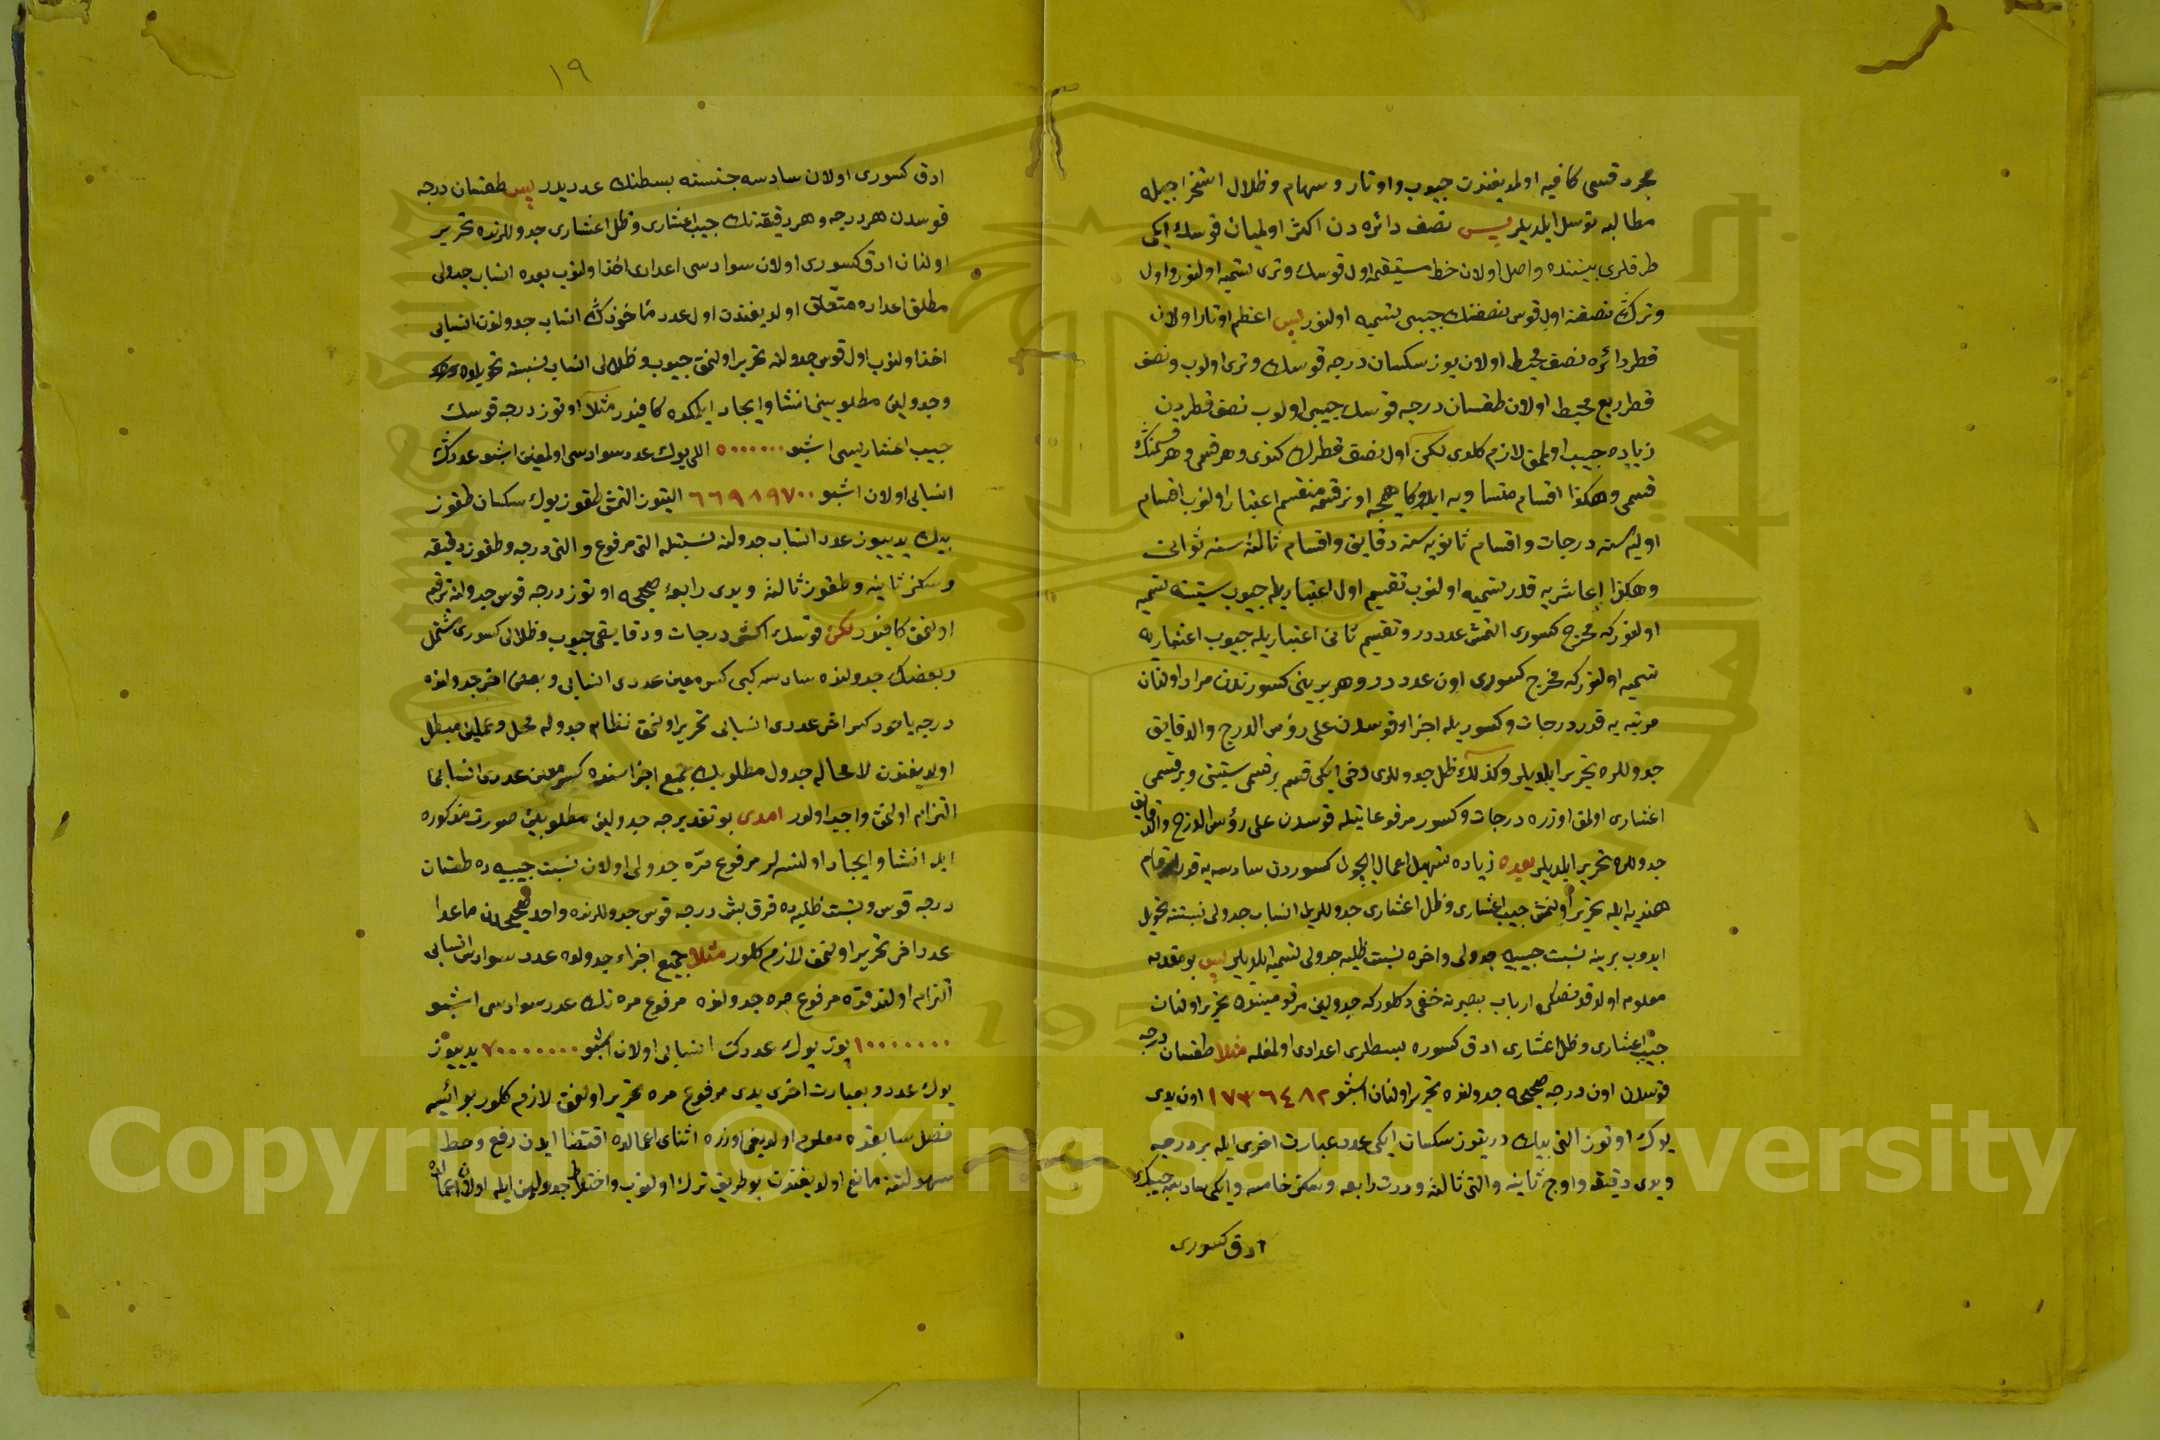 مجرد قسى كافيه اولمديغندن جيوب واوتار وسهام وظلال استخراجيله
مطالبه توسل ايلديلر پس نصف دائره دن اكثر اولميان قوسك ايكى
طرفلرى بيننده واصل اولان خط مستقيمه اول قوسك وترى تسميه اولنور واول
وترك نصفنه اول قوس نصفنك جيبى تسميه اولنور پس اعظم اوتار اولان
قطر دائره نصف محيط اولان يوز سكسان درجه قوسك وترى اولوب ونصف
قطر ربع محيط اولان طقسان درجه قوسك جيبى اولوب نصف قطردن
زياده جيب اولمق لازم كلدى لكن اول نصف قطرك كندى وهر قسمى وهر قسمنك
قسمى وهكذا اقسام متساويه ايله اونر قسمه منقسم اعتبار اولنوب اقسام
اوليه سنه درجات واقسام ثانويه سنه دقايق واقسام ثالثه سنه ثوانى
وهكذا عاشريه قدر تسميه اولنوب تقسيم اول اعتباريله جيوب ستينيه تسميه
اولنور كه مخرج كسورى التمش عدددر وتقسيم ثانى اعتباريله جيوب اعشاريه
تسميه اولنور كه مخرج كسورى اون عدددر وهر برينى كسورتدن مراد اولنان
مرتبه يه قدر درجات وكسوريله اجزاء قوسدن على رؤس الدرج والدقايق
جدوللره تحرير ايلديلر وكذلك ظل جدوللرى دخى ايكى قسم بر قسمى ستينى وبر قسمى
اعشارى اولمق اوزره درجات وكسور مرفوعاتيله قوسدن على رؤس الدرج والدقايق
جدوللره تحرير ايلديلر بعده زياده تسهيل اعمال ايچون كسوردن سادسه يه قدر ارقام
هنديه ايله تحرير اولنمش جيب اعشارى وظل اعشارى جدوللريله انساب جدولى نسبتنه تحويل
ايدوب برينه نسبت جيبيه جدولى واخره نسبت ظليه جدولى تسميه ايلديلر پس بو مقدمه
معلوم اولدقدنصكره ارباب بصيرته خفى دكلدر كه جدولين مرقومينده تحرير اولنان
جيب اعشارى وظل اعشارى ادق كسوره بسطلرى اعدادى اولمغله مثلا طقسان درجه
قوسدن اون درجه صحيحه جدولنده تحرير اولنان اشبو ١٧٣٦٤٨٢ اون يدى
يوك اوتوز التى بيك درتيوز سكسان ايكى عدد عبارت اخرى ايله بر درجه
ويدى دقيقه واوچ ثانيه والتى ثالثه ودرت رابعه وسكز خامسه وايكى سادسه جيبك
ادق كسورى
١٩
ادق كسورى اولان سادسه جنسنه بسطنك عدديدر پس طقسان درجه
قوسدن هر درجه وهر دقيقه نك جيب اعشارى وظل اعشارى جدوللرنده تحرير
اولنان ادق كسورى اولان سوادسى اعدادى اخذ اولنوب بعده انساب جدولى
مطلق اعداده متعلق اولديغندن اول عدد مأخوذك انساب جدولندن انسابى
اخذ اولنوب اول قوس جدولنه تحرير اولنمق جيوب وظلالى انساب نسبتنه تحويلده
وجدولين مطلوبينى انشا وايجاد ايلمكده كافيدر مثلا اوتوز درجه قوسك
جيب اعشاريسى اشبو ٥٠٠٠٠٠٠ اللى يوك عدد سوادسى اولمغين اشبو عددك
انسابى اولان اشبو ٦٦٩٨٩٧٠٠ التيوز التمش طقوز يوك سكسان طقوز
بيك يدييوز عدد انساب جدولنه نسبتله التى مرفوع والتى درجه وطقوز دقيقه
وسكز ثانيه وطقوز ثالثه ويدى رابعه صحيحه اوتوز درجه قوس جدولنه ترقيم
اولنمق كافيدر لكن قوسك اكثر درجات ودقايقى جيوب وظلالى كسورى مشتمل
وبعضك جدولنده سادسه كبى كسر معين عددى انسابى وبعض اخر جدولنده
درجه ياخود كسر اخر عددى انسابى تحرير اولنمق نظام جدوله مخل وعملين مبطل
اولديغندن لا محاله جدول مطلوبك جميع اجزاسنده كسر معين عددى انسابى
التزام اولنمق واجب اولور امدى بو تقديرجه جدولين مطلوبين صورت مذكوره
ايله انشا وايجاد اولنسه لر مرفوع مره جدولى اولان نسبت جيبيه ده طقسان
درجه قوس ونسبت ظليه ده قرق بش درجه قوس جدوللرنده واحد صحيحدن ماعدا
عدد اخر تحرير اولنمق لازم كلور مثلا جميع اجزاء جدولده عدد سوادس انسابى
التزام اولندقده مرفوع مره جدولنده مرفوع مره نك عدد سوادسى اشبو
١٠٠٠٠٠٠٠ يوز يوك عددك انسابى اولان اشبو ٧٠٠٠٠٠٠٠ يدييوز
يوك عدد وبعبارت اخرى يدى مرفوع مره تحرير اولنمق لازم كلور بو ايسه
فصل سابقده معلوم اولديغى اوزره اثناى اعمالده اقتضا ايدن رفع وحط
سهولتنه مانع اولديغندن بو طريق ترك اولنوب واختلاط جدولين ايله اولان اعمالده
Copyright © King Saud University
1957